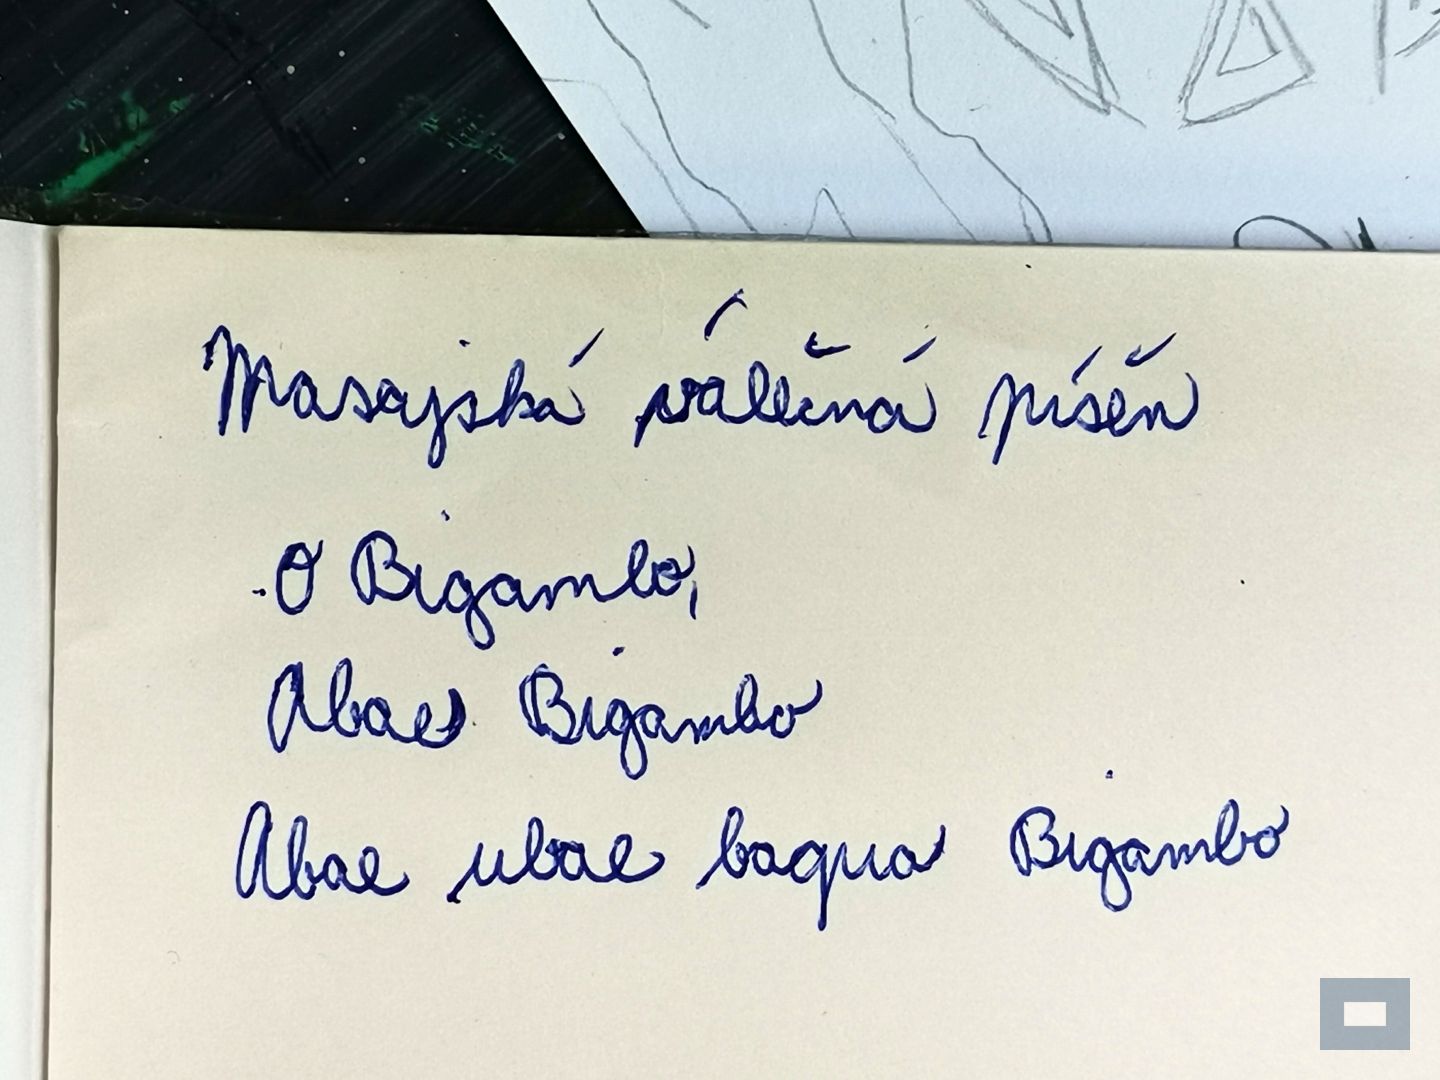 Masajská válečná píseň
O Bigambo,
Abae Bigambo
Abae ubae baqua Bigambo